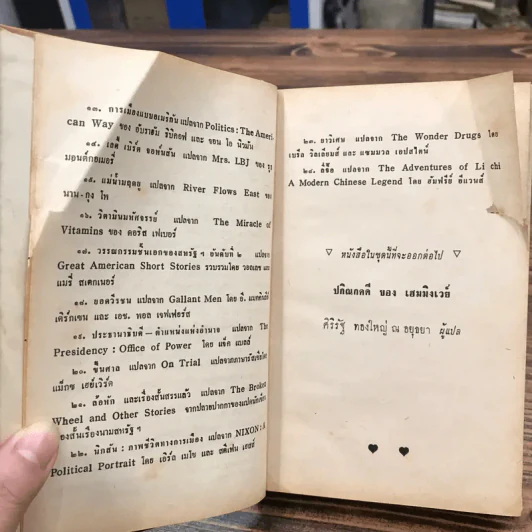 ๑๓. การเมืองแบบอเมริกัน แปลจาก Politics : The Ameri-
can Way ของ อับราฮัม ริบิคอฟ และ จอน โอ นิวแมน
๑๔. เลดี้ เบิร์ด จอห์นสัน แปลจาก Mrs. LBJ ของ รูธ
มอนต์กอเมอรี่
๑๕. แม่น้ำ แปลจาก River Flows East ของ
นาน-กุง โพ
๑๖. วิตามินมหัศจรรย์ แปลจาก The Miracle of
Vitamins ของ ดอริส เฟเบอร์
๑๗. วรรณกรรมชั้นเอกของสหรัฐ ฯ อันดับที่ ๒ แปลจาก
Great American Short Stories รวบรวมโดย วอลเลซ และ
แมรี่ สเตกเนอร์
๑๘. ยอดวีรชน แปลจาก Gallant Men โดย อี.
เดิร์กเซน และ เอช. พอล เจฟเฟอร์ส
๑๙. ประธานาธิบดี – ตำแหน่งแห่งอำนาจ แปลจาก The
Presidency : Office of Power โดย แจ็ค เบลล์
๒๐. ขึ้นศาล แปลจาก On Trial แปลจากภาษารัสเซียโดย
แม็กซ์ เฮย์เวิร์ด
๒๑. ล้อหัก และเรื่องสั้นสรรแล้ว แปลจาก The Broken
Wheel and Other Stories จากปลายปากกาของ
ของสั้นเรืองนามสหรัฐ ฯ
๒๒. นิกสัน : ภาพชีวิตทางการเมือง แปลจาก NIXON : A
Political Portrait โดย เอิร์ล เมโซ และ สตีเฟน เฮสส์
๒๓. ยาวิเศษ แปลจาก The Wonder Drugs โดย
เบริล วิลเลียมส์ และ แซมมวล เอปสไตน์
๒๔. ลี่จื๊อ แปลจาก The Adventures of Li chi
A Modern Chinese Legend โดย ฮัมฟรีย์ อีแวนส์
▽ หนังสือในชุดนี้ที่จะออกต่อไป ▽
ปกิณกคดี ของ เฮมมิงเวย์
ศิริรัฐ ทองใหญ่ ณ อยุธยา ผู้แปล
♥ ♥